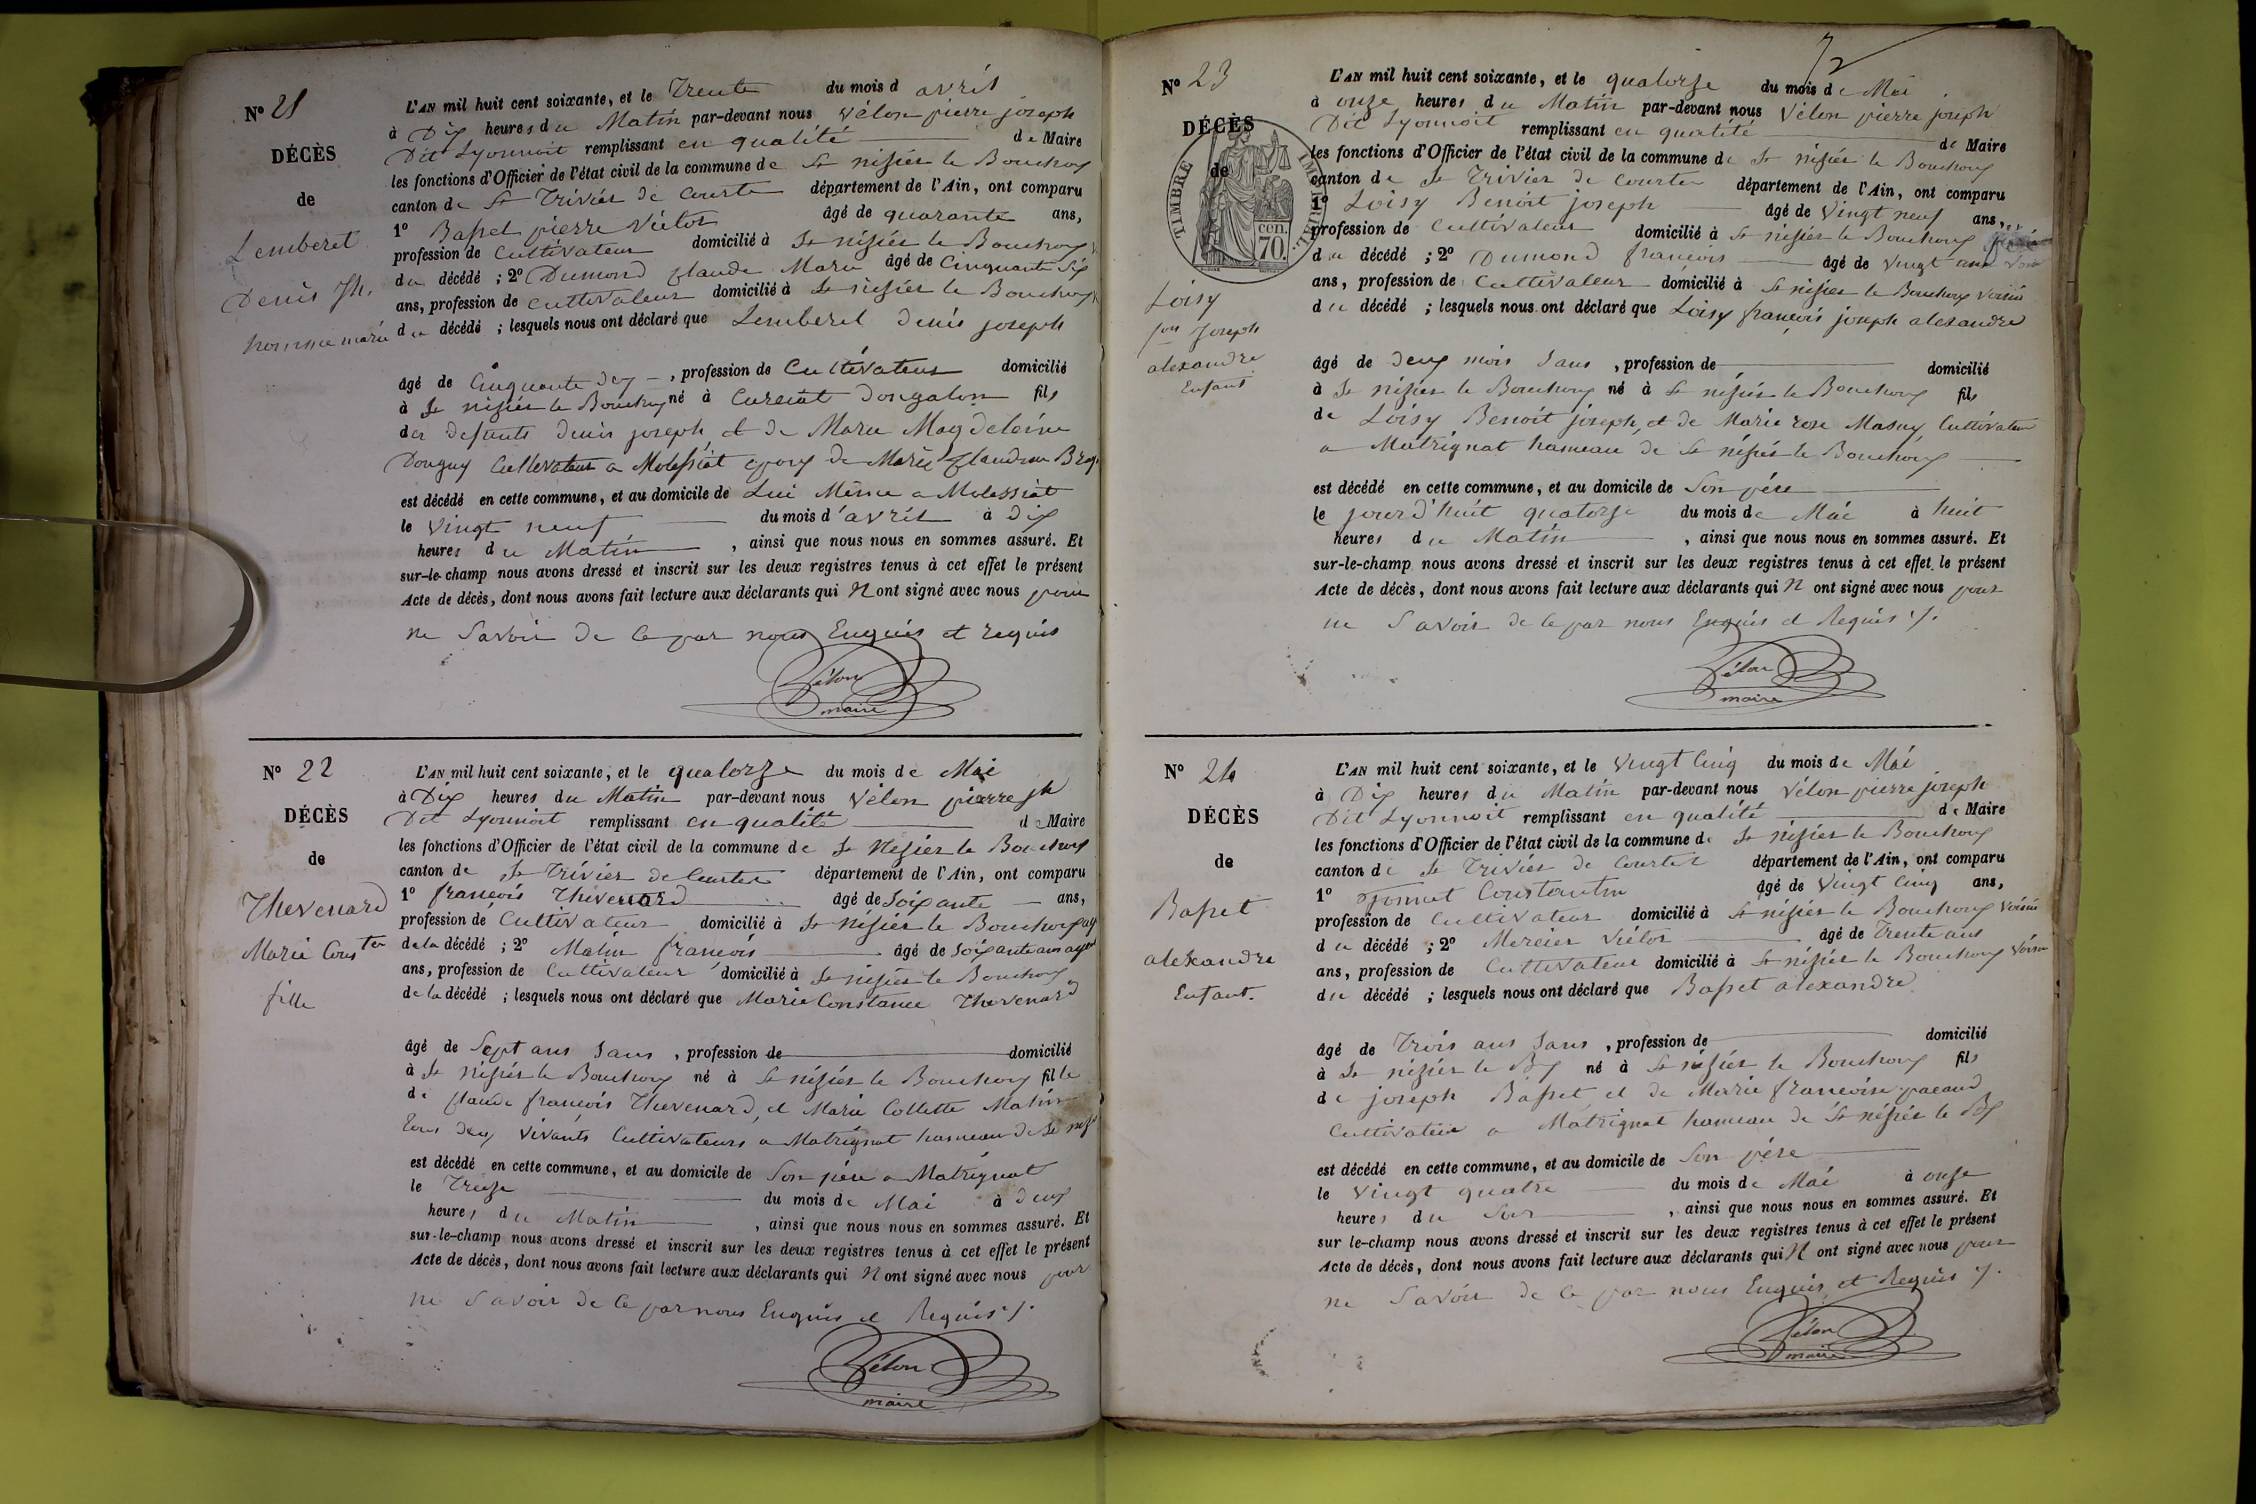 N° 21
DÉCÈS
de
Lemberet
Denis Jh.
homme marié
L'AN mil huit cent soixante, et le Trente du mois d avril
à Dix heures du Matin par-devant nous Vélon pierre joseph
Dit Lyonnoit remplissant en qualité de Maire
les fonctions d'Officier de l'état civil de la commune de St nisier le Bouchoux
canton de St Trivier de Courte département de l'Ain, ont comparu
1° Basset pierre Victor âgé de quarante ans,
profession de Cultivateur domicilié à St nisier le Bouchoux
du décédé ; 2° Dumond Claude Marie âgé de Cinquante Six
ans, profession de Cultivateur domicilié à St nisier le Bouchoux
du décédé ; lesquels nous ont déclaré que Lemberet Denis joseph
âgé de Cinquante deux, profession de Cultivateur domicilié
à St nisier le Bouchoux né à Curciat Dongalon fils
des defunts Denis joseph, et de Marie Magdeleine
Donguy Cultivateur a Molessiat epoux de Marie Claudine
est décédé en cette commune, et au domicile de Lui Même a Molessiat
le vingt neuf du mois d'avril à Dix
heures du Matin, ainsi que nous nous en sommes assuré. Et
sur-le-champ nous avons dressé et inscrit sur les deux registres tenus à cet effet le présent
Acte de décès, dont nous avons fait lecture aux déclarants qui N ont signé avec nous pour
ne Savoir de Ce par nous Enquis et requis
Vélon
maire
N° 22
DÉCÈS
de
Thevenard
Marie Cons.ce
fille
L'AN mil huit cent soixante, et le quatorze du mois de Mai
à Dix heures du Matin par-devant nous Vélon pierre jh
Dit Lyonnoit remplissant en qualité de Maire
les fonctions d'Officier de l'état civil de la commune de St Nisier le Bouchoux
canton de St Trivier de Courtes département de l'Ain, ont comparu
1° françois Thevenard âgé de Soixante ans,
profession de Cultivateur domicilié à St nisier le Bouchoux
de la décédé ; 2° Matin françois âgé de Soixante ans
ans, profession de Cultivateur domicilié à St nisier le Bouchoux
de la décédé ; lesquels nous ont déclaré que Marie Constance Thevenard
âgé de Sept ans Sans, profession de domicilié
à St Nisier le Bouchoux né à St nisier le Bouchoux fille
de Claude françois Thevenard, et Marie Collette Matin
tous deux vivants Cultivateurs a Matrignat hameau de St
est décédé en cette commune, et au domicile de Son père a Matrignat
le Treize du mois de Mai à deux
heures du Matin, ainsi que nous nous en sommes assuré. Et
sur-le-champ nous avons dressé et inscrit sur les deux registres tenus à cet effet le présent
Acte de décès, dont nous avons fait lecture aux déclarants qui N ont signé avec nous pour
ne Savoir de Ce par nous Enquis et Requis ./.
Vélon
maire
72
N° 23
DÉCÈS
de
TIMBRE IMPERIAL
70 cen.
Loisy
fois Joseph
alexandre
Enfant
L'AN mil huit cent soixante, et le quatorze du mois de Mai
à onze heures du Matin par-devant nous Vélon pierre joseph
Dit Lyonnoit remplissant en qualité de Maire
les fonctions d'Officier de l'état civil de la commune de St nisier le Bouchoux
canton de St Trivier de Courtes département de l'Ain, ont comparu
1° Loisy Benoit joseph âgé de Vingt neuf ans,
profession de Cultivateur domicilié à St nisier le Bouchoux
du décédé ; 2° Dumond françois âgé de vingt
ans, profession de Cultivateur domicilié à St nisier le Bouchoux voisin
du décédé ; lesquels nous ont déclaré que Loisy françois joseph alexandre
âgé de deux mois Sans, profession de domicilié
à St nisier le Bouchoux né à St nisier le Bouchoux fils
de Loisy Benoit joseph, et de Marie rose Masuy Cultivateur
a Matrignat hameau de St nisier le Bouchoux
est décédé en cette commune, et au domicile de Son père
le jourd'huit quatorze du mois de Mai à huit
heures du Matin, ainsi que nous nous en sommes assuré. Et
sur-le-champ nous avons dressé et inscrit sur les deux registres tenus à cet effet le présent
Acte de décès, dont nous avons fait lecture aux déclarants qui N ont signé avec nous pour
ne Savoir de Ce par nous Enquis et Requis ./.
Vélon
maire
N° 24
DÉCÈS
de
Basset
alexandre
Enfant.
L'AN mil huit cent soixante, et le Vingt Cinq du mois de Mai
à Dix heures du Matin par-devant nous Vélon pierre joseph
Dit Lyonnoit remplissant en qualité de Maire
les fonctions d'Officier de l'état civil de la commune de St nisier le Bouchoux
canton de St Trivier de Courtes département de l'Ain, ont comparu
1° Constantin âgé de Vingt Cinq ans,
profession de Cultivateur domicilié à St nisier le Bouchoux Voisin
du décédé ; 2° Mercier Victor âgé de Trente ans
ans, profession de Cultivateur domicilié à St nisier le Bouchoux Voisin
du décédé ; lesquels nous ont déclaré que Basset alexandre
âgé de Trois ans Sans, profession de domicilié
à St nisier le Bx né à St nisier le Bouchoux fils
de joseph Basset, et de Marie françoise pacaud
Cultivateur a Matrignat hameau de St nisier le Bx
est décédé en cette commune, et au domicile de Son père
le vingt quatre du mois de Mai à onze
heures du Soir, ainsi que nous nous en sommes assuré. Et
sur le-champ nous avons dressé et inscrit sur les deux registres tenus à cet effet le présent
Acte de décès, dont nous avons fait lecture aux déclarants qui N ont signé avec nous pour
ne Savoir de Ce par nous Enquis et Requis ./.
Vélon
maire